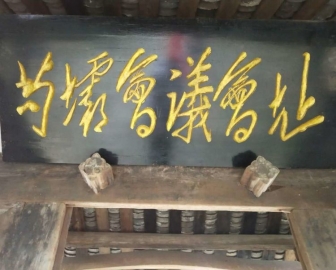 苟壩會議會址